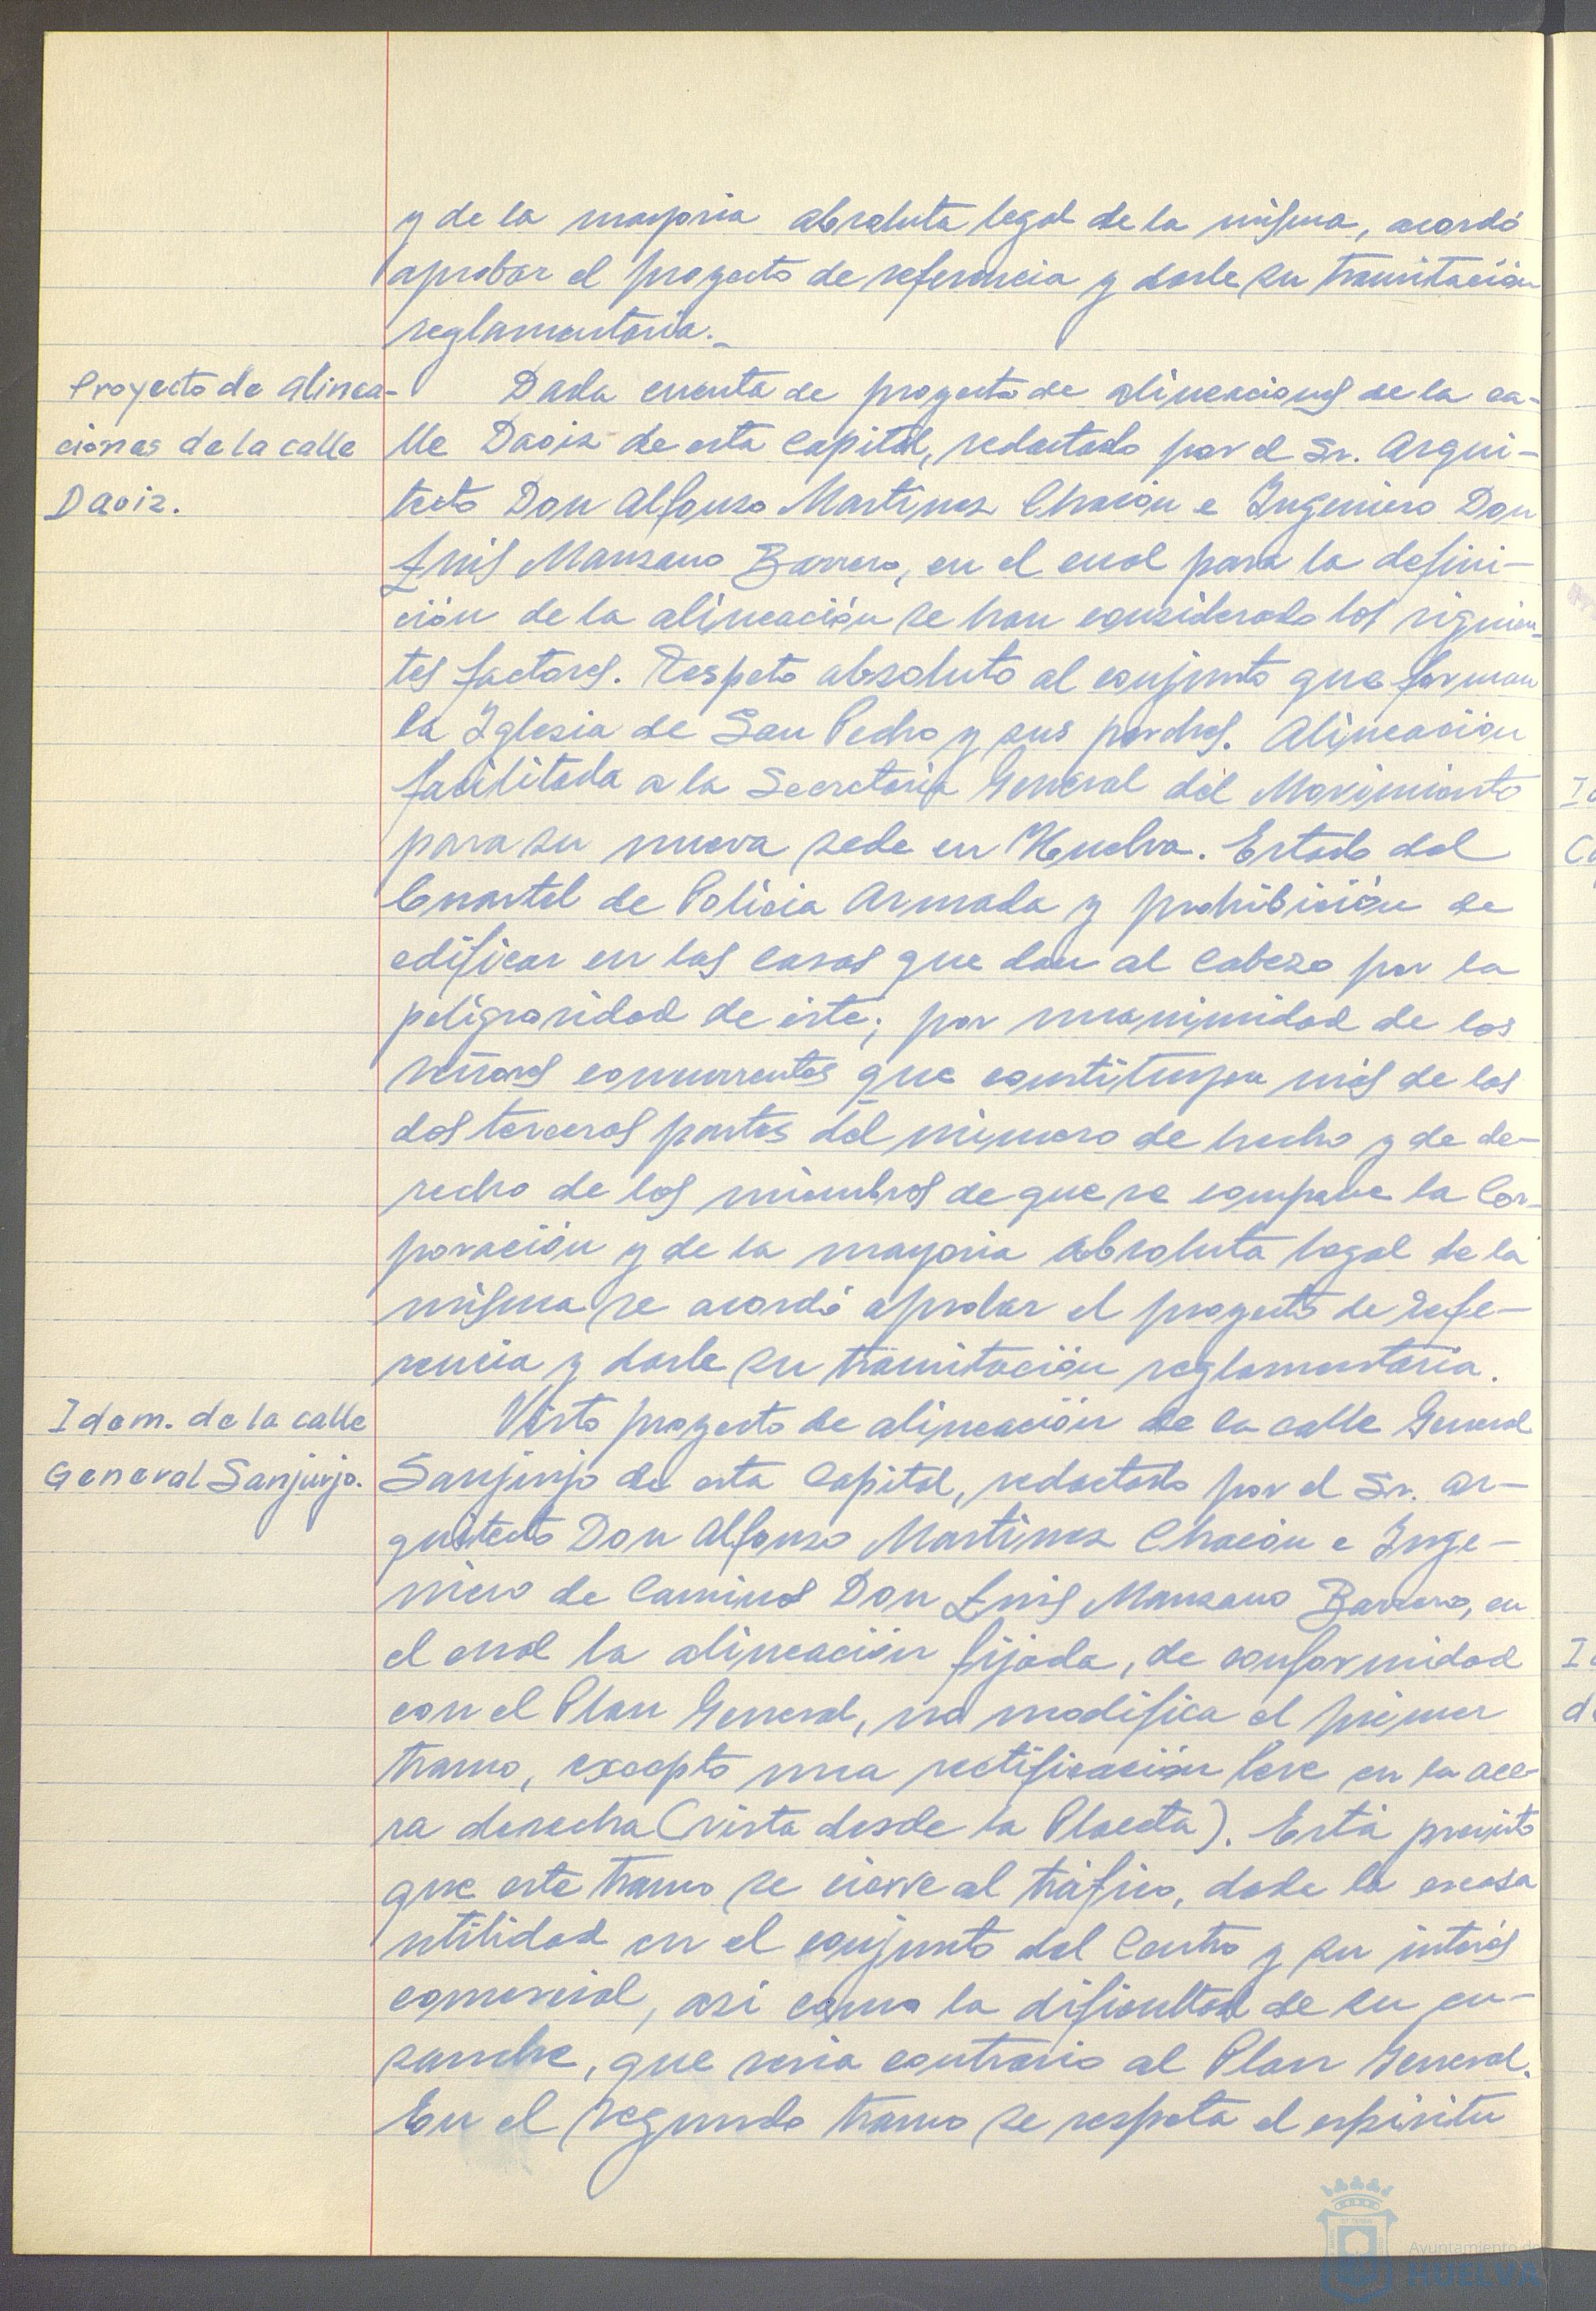 y de la mayoria absoluta legal de la misma, acordó
aprobar el proyecto de referencia y darle su tramitación
reglamentaria.-
Proyecto de alinea-
ciones de la calle
Daoiz.
Dada cuenta de proyecto de alineaciones de la ca-
lle Daoiz de esta Capital, redactado por el Sr. Arqui-
tecto Don Alfonso Martinez Chacón e Ingeniero Don
Luis Manzano Barrero, en el cual para la defini-
ción de la alineación se han considerado los siguien-
tes factores. Respeto absoluto al conjunto que forman
la Iglesia de San Pedro y sus porches. Alineación
facilitada a la Secretaria General del Movimiento
para su nueva sede en Huelva. Estado del
Cuartel de Policia Armada y prohibición de
edificar en las casas que dan al Cabezo por la
peligrosidad de éste; por unanimidad de los
señores concurrentes que constituyen más de las
dos terceras partes del número de hecho y de de-
recho de los miembros de que se compone la Cor-
poración y de la mayoria absoluta legal de la
misma se acordó aprobar el proyecto de refe-
rencia y darle su tramitación reglamentaria.
Idem. de la calle
General Sanjurjo.
Visto proyecto de alineación de la calle General
Sanjurjo de esta Capital, redactado por el Sr. Ar-
quitecto Don Alfonso Martinez Chacón e Inge-
niero de Caminos Don Luis Manzano Barrero, en
el cual la alineación fijada, de conformidad
con el Plan General, no modifica el primer
tramo, excepto una rectificación leve en la ace-
ra derecha (vista desde la Placeta). Está previsto
que este tramo se cierre al tráfico, dada la escasa
utilidad en el conjunto del Centro y su interés
comercial, asi como la dificultad de su en-
sanche, que seria contrario al Plan General.
En el segundo tramo se respeta el espiritu
Ayuntamiento de
HUELVA